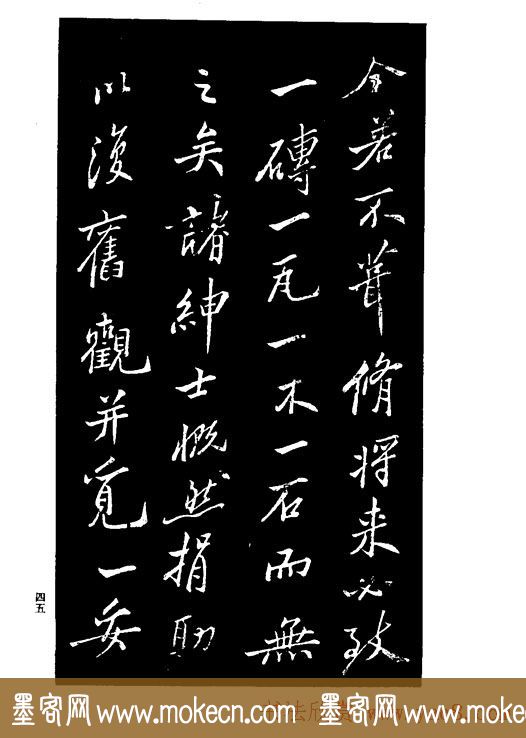 今若不葺脩将来必致
一磚一瓦一木一石而無
之矣諸紳士慨然捐助
以復舊觀并覓一妥
四五
墨客网 www.mokecn.com 墨客网 www.mokecn.com